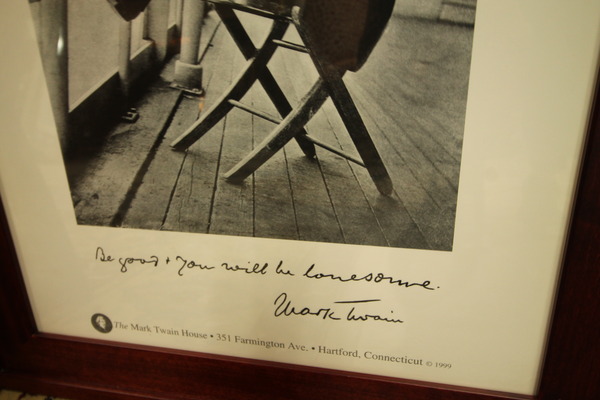 Be good + you will be lonesome.
Mark Twain
The Mark Twain House • 351 Farmington Ave. • Hartford, Connecticut © 1999